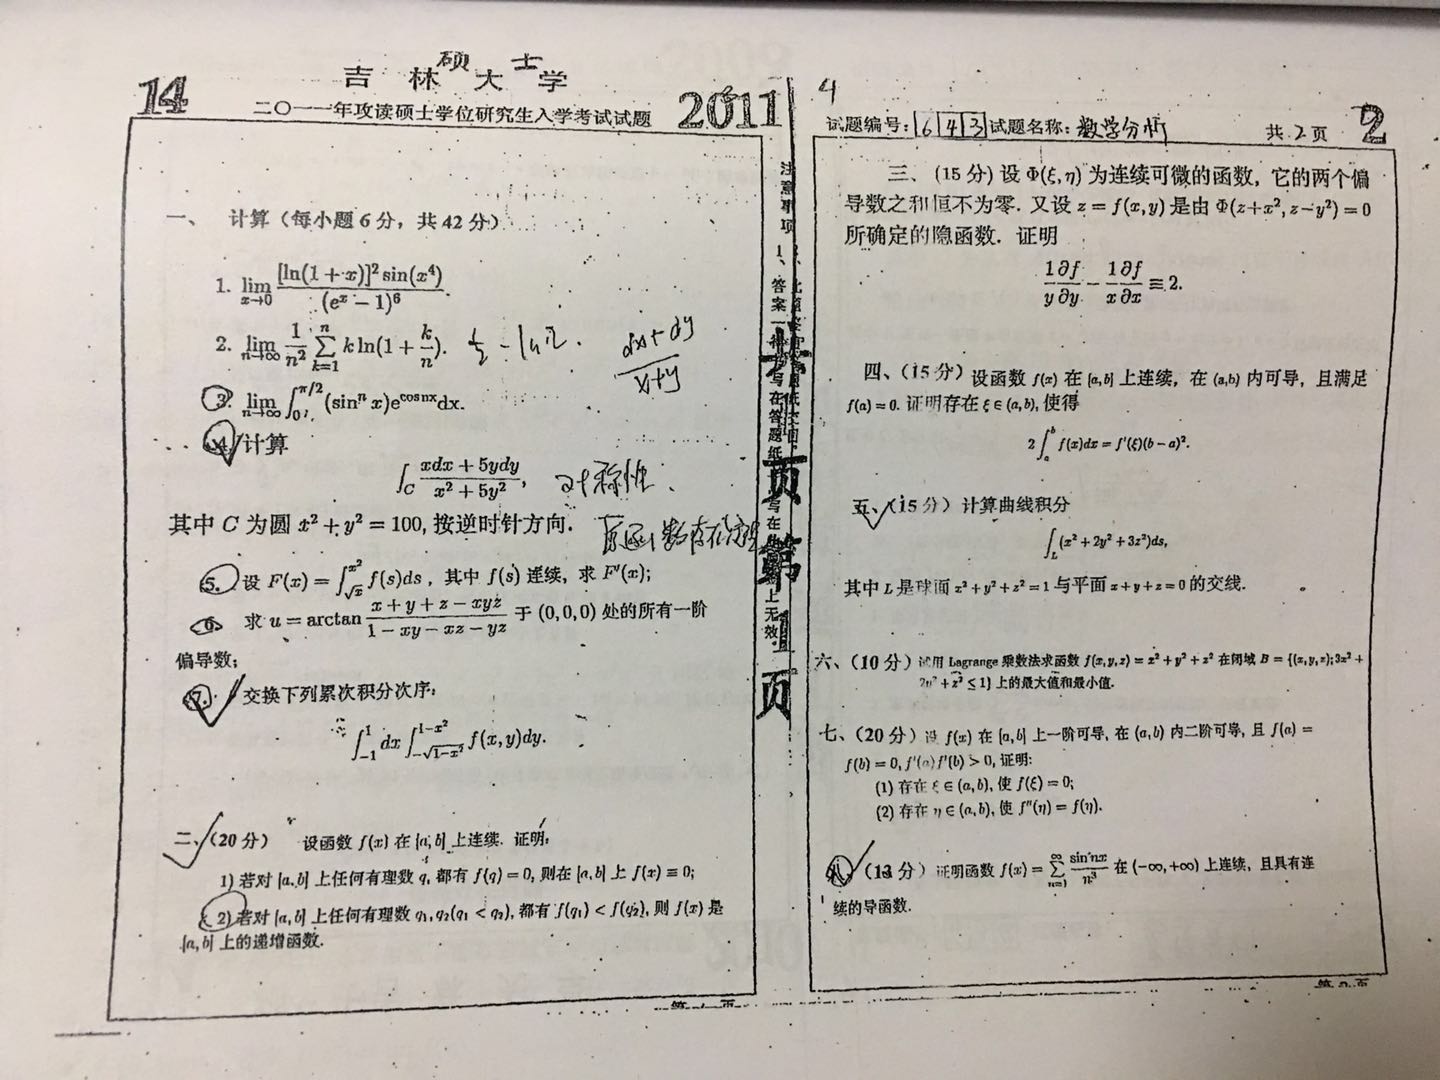 硕士
吉林大学
14
二〇一一年攻读硕士学位研究生入学考试试题
2011
一、 计算（每小题6分，共42分）
1. lim x→0 [ln(1+x)]² sin(x⁴) / (eˣ − 1)⁶.
2. lim n→∞ 1/n² ∑ k=1 n k ln(1 + k/n).
3. lim n→∞ ∫₀^{π/2} (sinⁿ x)e^{cos nx}dx.
dx+dy
x+y
4. 计算
∫_C (xdx + 5ydy)/(x² + 5y²),
对称性.
其中 C 为圆 x² + y² = 100, 按逆时针方向.
5. 设 F(x) = ∫_{√x}^{x²} f(s)ds，其中 f(s) 连续，求 F′(x);
6. 求 u = arctan (x + y + z − xyz)/(1 − xy − xz − yz) 于 (0,0,0) 处的所有一阶
偏导数;
7. 交换下列累次积分次序:
∫_{−1}^{1} dx ∫_{−√(1−x²)}^{1−x²} f(x,y)dy.
二、（20分） 设函数 f(x) 在 [a,b] 上连续. 证明:
1) 若对 [a,b] 上任何有理数 q, 都有 f(q) = 0, 则在 [a,b] 上 f(x) ≡ 0;
2) 若对 [a,b] 上任何有理数 q₁,q₂(q₁ < q₂), 都有 f(q₁) < f(q₂), 则 f(x) 是
[a,b] 上的递增函数.
第 1 页
注意事项
页 第 1 页
4
试题编号: 643 试题名称: 数学分析
共 2 页
2
三、（15分) 设 Φ(ξ,η) 为连续可微的函数，它的两个偏
导数之和恒不为零. 又设 z = f(x,y) 是由 Φ(z+x², z−y²) = 0
所确定的隐函数. 证明
1/y ∂f/∂y − 1/x ∂f/∂x ≡ 2.
四、（15分）设函数 f(x) 在 [a,b] 上连续，在 (a,b) 内可导，且满足
f(a) = 0. 证明存在 ξ ∈ (a,b), 使得
2∫ₐᵇ f(x)dx = f′(ξ)(b − a)².
五、（15分）计算曲线积分
∫_L (x² + 2y² + 3z²)ds,
其中 L 是球面 x² + y² + z² = 1 与平面 x + y + z = 0 的交线.
六、（10分）试用 Lagrange 乘数法求函数 f(x,y,z) = x² + y² + z² 在闭域 B = {(x,y,z); 3x² +
2y² + z² ≤ 1} 上的最大值和最小值.
七、（20分）设 f(x) 在 [a,b] 上一阶可导, 在 (a,b) 内二阶可导, 且 f(a) =
f(b) = 0, f′(a)f′(b) > 0, 证明:
(1) 存在 ξ ∈ (a,b), 使 f(ξ) = 0;
(2) 存在 η ∈ (a,b), 使 f″(η) = f(η).
八、（13分）证明函数 f(x) = ∑ n=1 ∞ sin nx / n³ 在 (−∞,+∞) 上连续，且具有连
续的导函数.
第 2 页